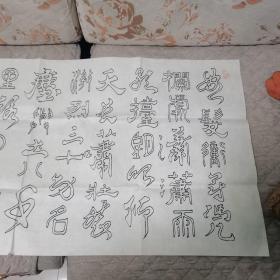 怒髮衝冠憑
欄處瀟瀟雨
歇擡望眼仰
天長嘯壯懷
激烈三十功名
塵與土八千
里路